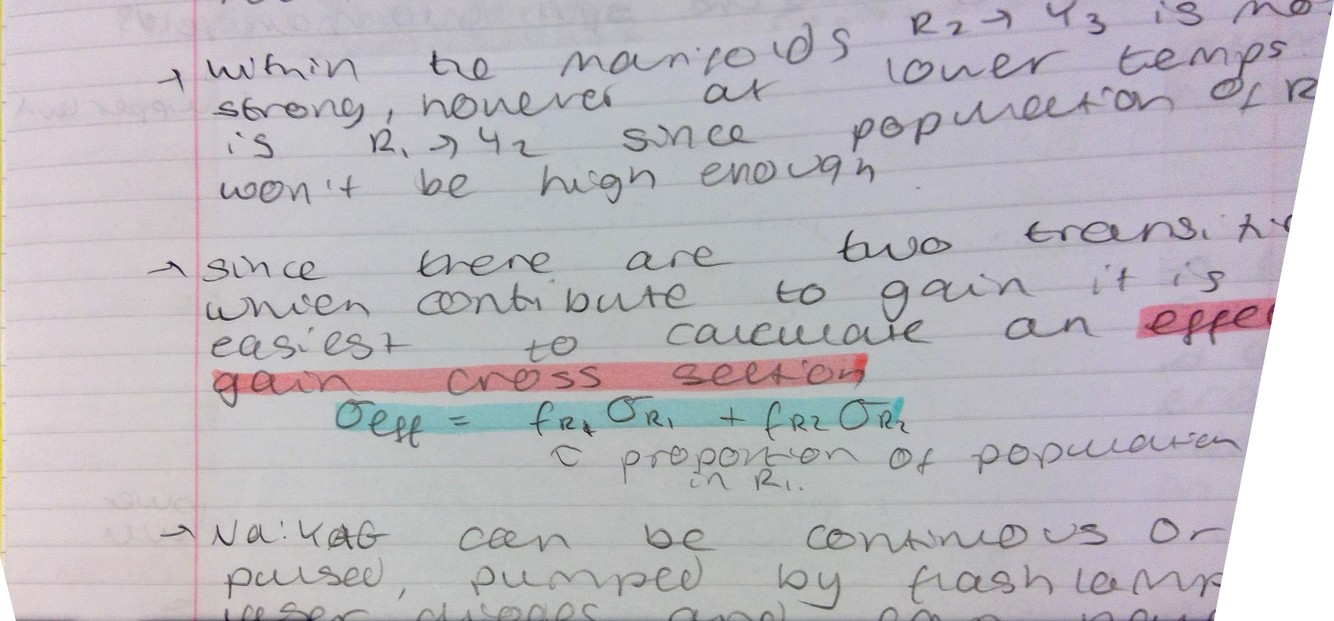 R₂ → Y₃ is
→ within the manifolds
strong, however at lower temps
is R₁ → Y₂ since population of R
won't be high enough.
→ since there are two transiti
which contribute to gain it is
easiest to calculate an effec
gain cross section
σeff = fR₁ σR₁ + fR₂ σR₂
↑ proportion of population
in R₁.
→ Nd:YAG can be continuous or
pulsed, pumped by flash lamp
laser diodes and can